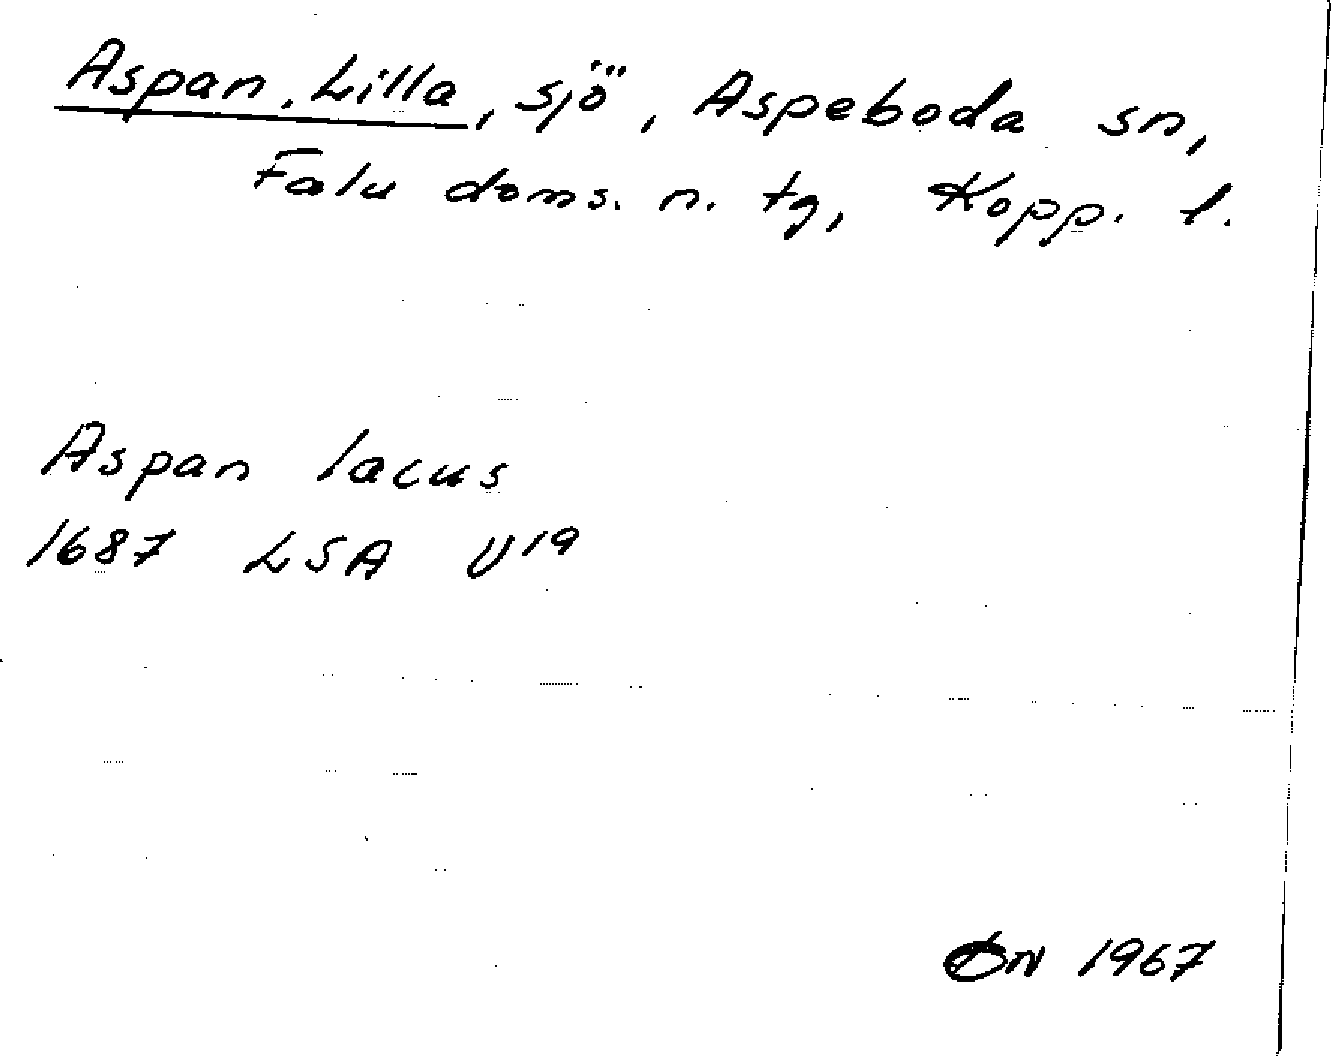 Aspan, Lilla, sjö, Aspeboda sn,
Falu doms. n. tg, Kopp. l.
Aspan lacus
1687 LSA U19
1967